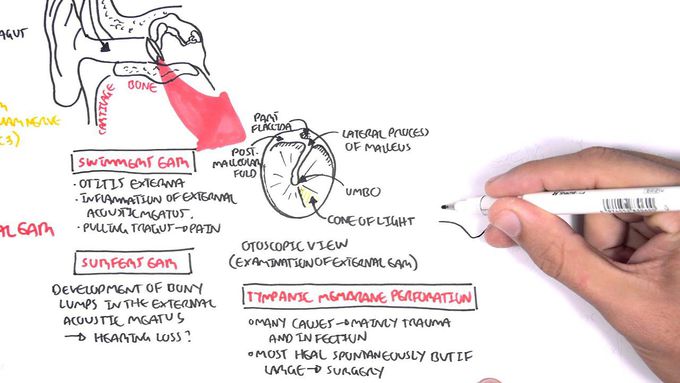 RAGUT
NERVE
C3)
EAR
CARTILAGE
BONE
SWIMMERS EAR
· OTITIS EXTERNA
· INFLAMATION OF EXTERNAL
ACOUSTIC MEATUS.
· PULLING TRAGUT → PAIN
SURFERS EAR
DEVELOPMENT OF BONY
LUMPS IN THE EXTERNAL
ACOUSTIC MEATUS
→ HEARING LOSS?
PART
FLACCIDA
POST.
MALLEOLAR
FOLD
LATERAL PROCESS
OF MALLEUS
UMBO
CONE OF LIGHT
OTOSCOPIC VIEW
(EXAMINATION OF EXTERNAL EAR)
TYMPANIC MEMBRANE PERFORATION
○ MANY CAUSES → MAINLY TRAUMA
AND INFECTION
○ MOST HEAL SPONTANEOUSLY BUT IF
LARGE → SURGERY